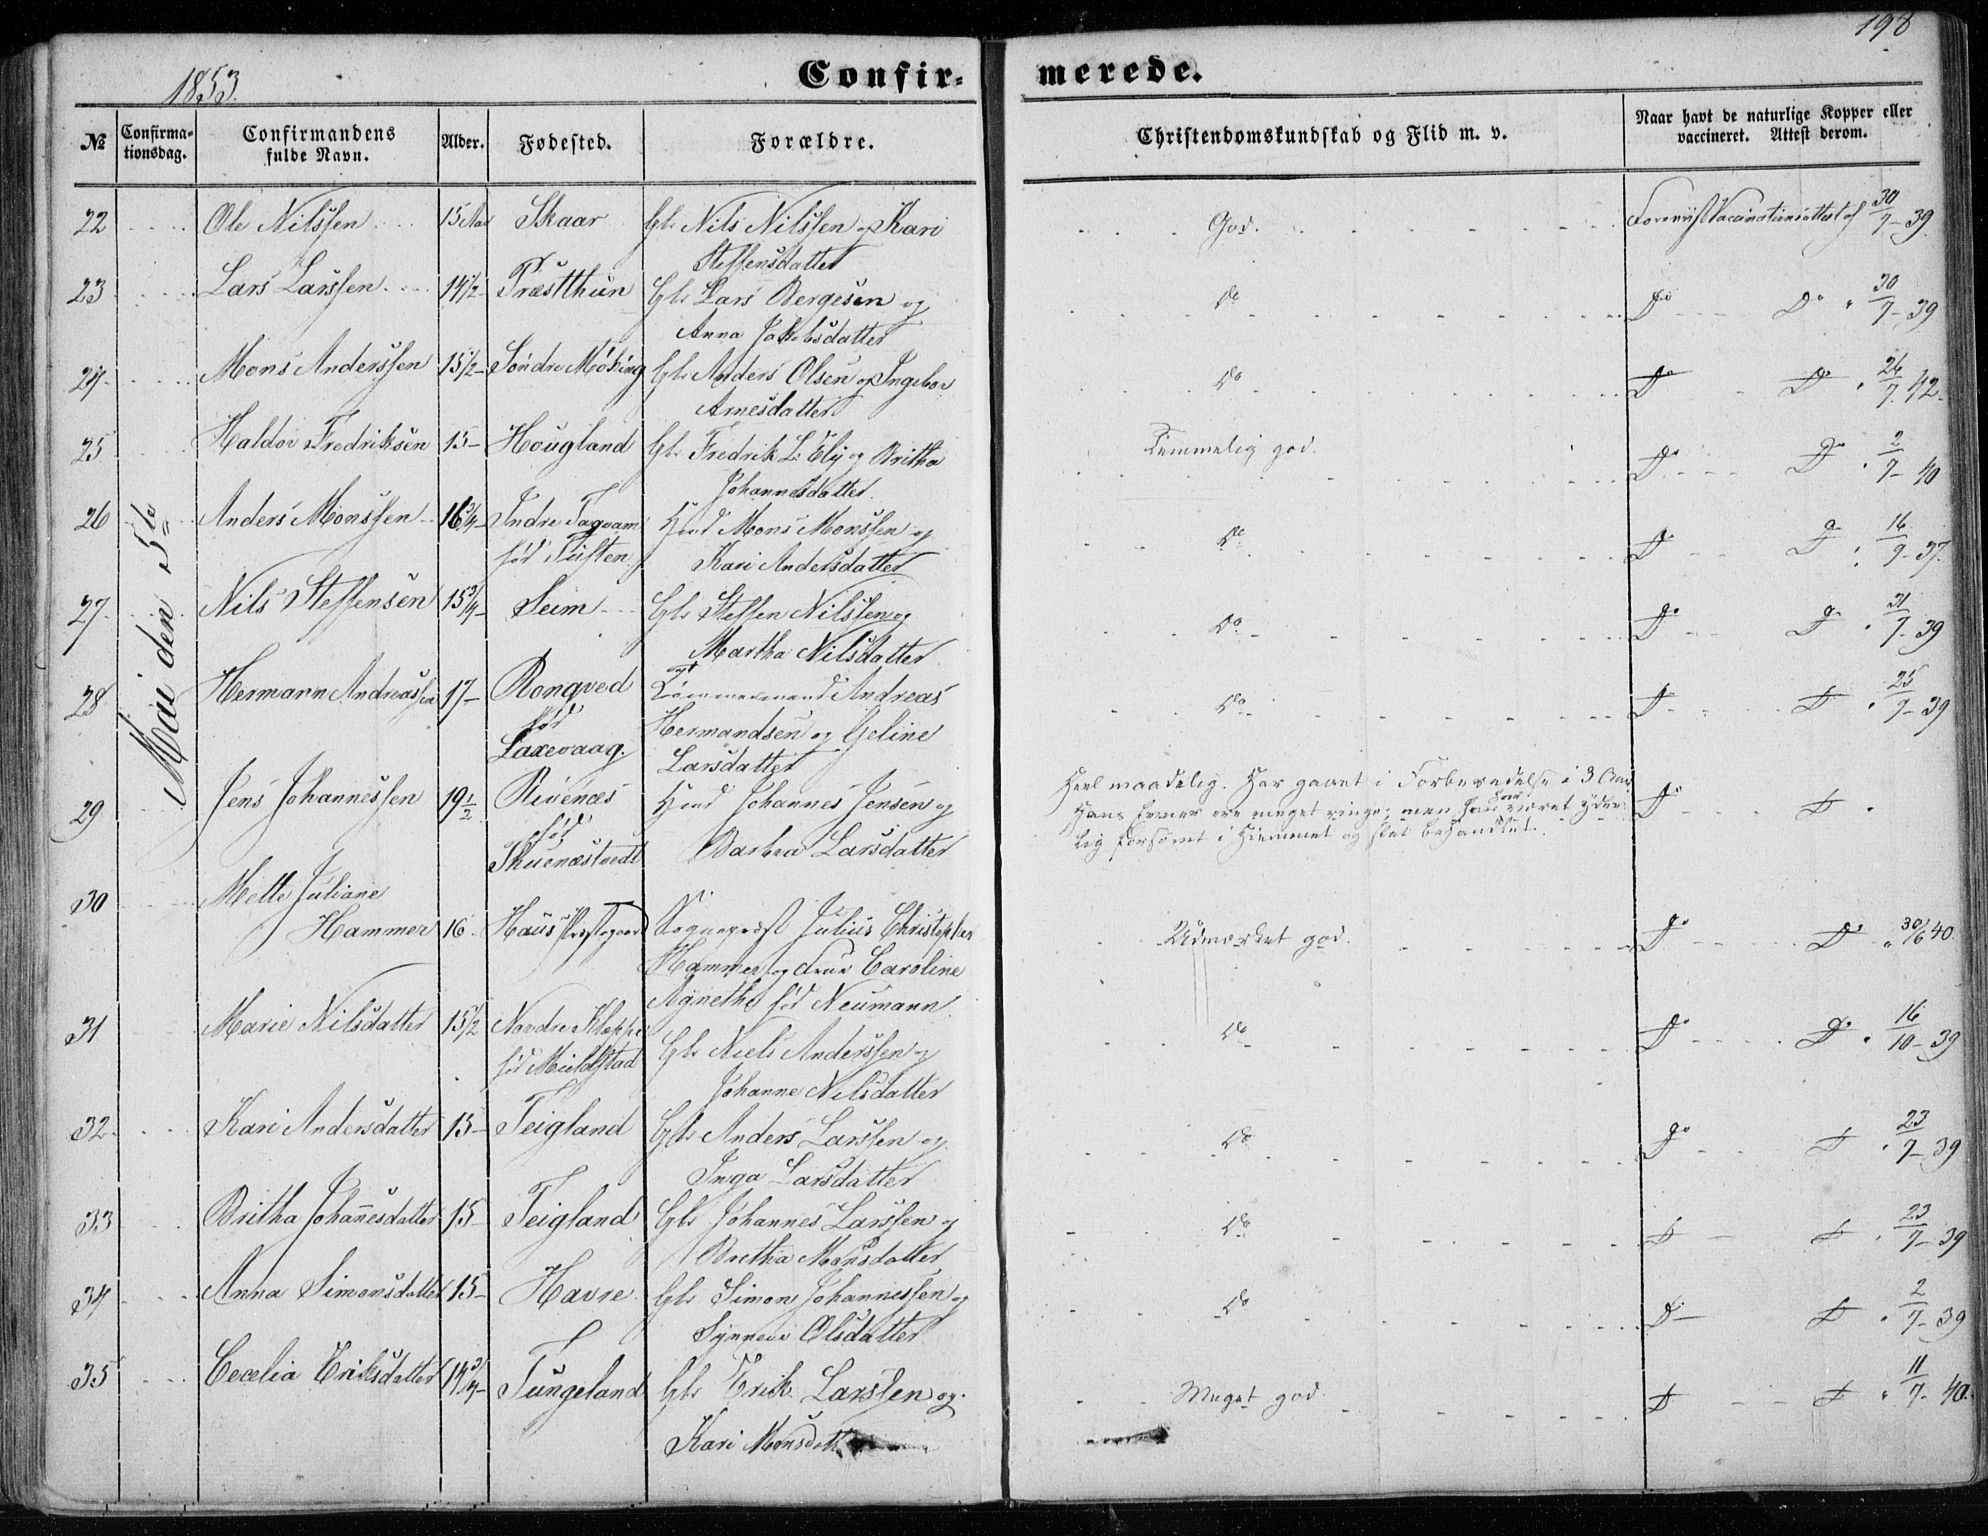 1853.
Confir-
merede.
198
№
Confirma-
tionsdag.
Confirmandens
fulde Navn.
Alder.
Fødested.
Forældre.
Christendomskundskab og Flid m. v.
Naar havt de naturlige Kopper eller
vaccineret. Attest derom.
Mai den 5te
22 Ole Nilssen 15 Aar Skaar Gbr Nils Nilssen og Kari God. Foreviist Vaccinationsattest af 30/7-39.
Steffensdatter
23 Lars Larssen 14 1/2 Præstthun Gbr Lars Bergesen og Do Do Do 30/7-39
Anna Jakobsdatter
24 Mons Anderssen 15 1/2 Søndre Moking Gbr Anders Olsen og Ingebor Do Do Do 26/7 42
Arnesdatter
25 Haldor Fredriksen 15 Hougland Gbr Fredrik L. Ely og Britha Temmelig god. Do Do 2/7-40
Johannesdatter.
26 Anders Monssen 16 3/4 Indre Mons Monssen og Do Do Do 16/9-37.
fød Tuften Kari Andersdatter
27. Nils Steffensen 15 3/4 Seim Gbr Steffen Nilssen og Do Do Do 31/7-39
Martha Nilsdatter
28 Hermann Andreassen 17 Rongved Tømmermand Andreas Do Do Do 25/7-39
fød Hermandsen og Geline
Laxevaag. Larsdatter
29 Jens Johannessen 19 1/2 Rivenæs Johannes Jensen og Heel maadelig. Har gaaet i Forberedelse i 3 Aar Do Do
Hans Evner ere meget ringe; men han har været yder-
fød Barbra Larsdatter lig forsømt i Hiemmet og slet behandlet.
Thuenæstvedt
30 Mette Juliane
Hammer 16 Haus Præstegaard Sognepræst Julius Christopher Udmærket god. Do Do 30/6 40.
Hammer og Frue Caroline
Agnethe fød Neumann
31 Marie Nilsdatter 15 1/2 Nordre Kloppe Gbr Niels Anderssen og Do Do Do 16/10-39
fød Mieldstad Johanne Nilsdatter
32 Kari Andersdatter 15 Teigland Gbr Anders Larssen og Do Do Do 23/7-39
Inga Larsdatter
33 Britha Johanesdatter 15 Teigland Gbr Johannes Larssen og Do Do Do 23/7-39
Bretha Monsdatter
34 Anna Simonsdatter 15 Havre Gbr Simon Johannessen og Do Do Do 2/7-39
Synneve Olsdatter
35 Cecelia Eriksdatter 14 3/4 Tungeland Gbr Erik Larssen og Meget god. Do Do 11/7-40.
Kari Monsdatt